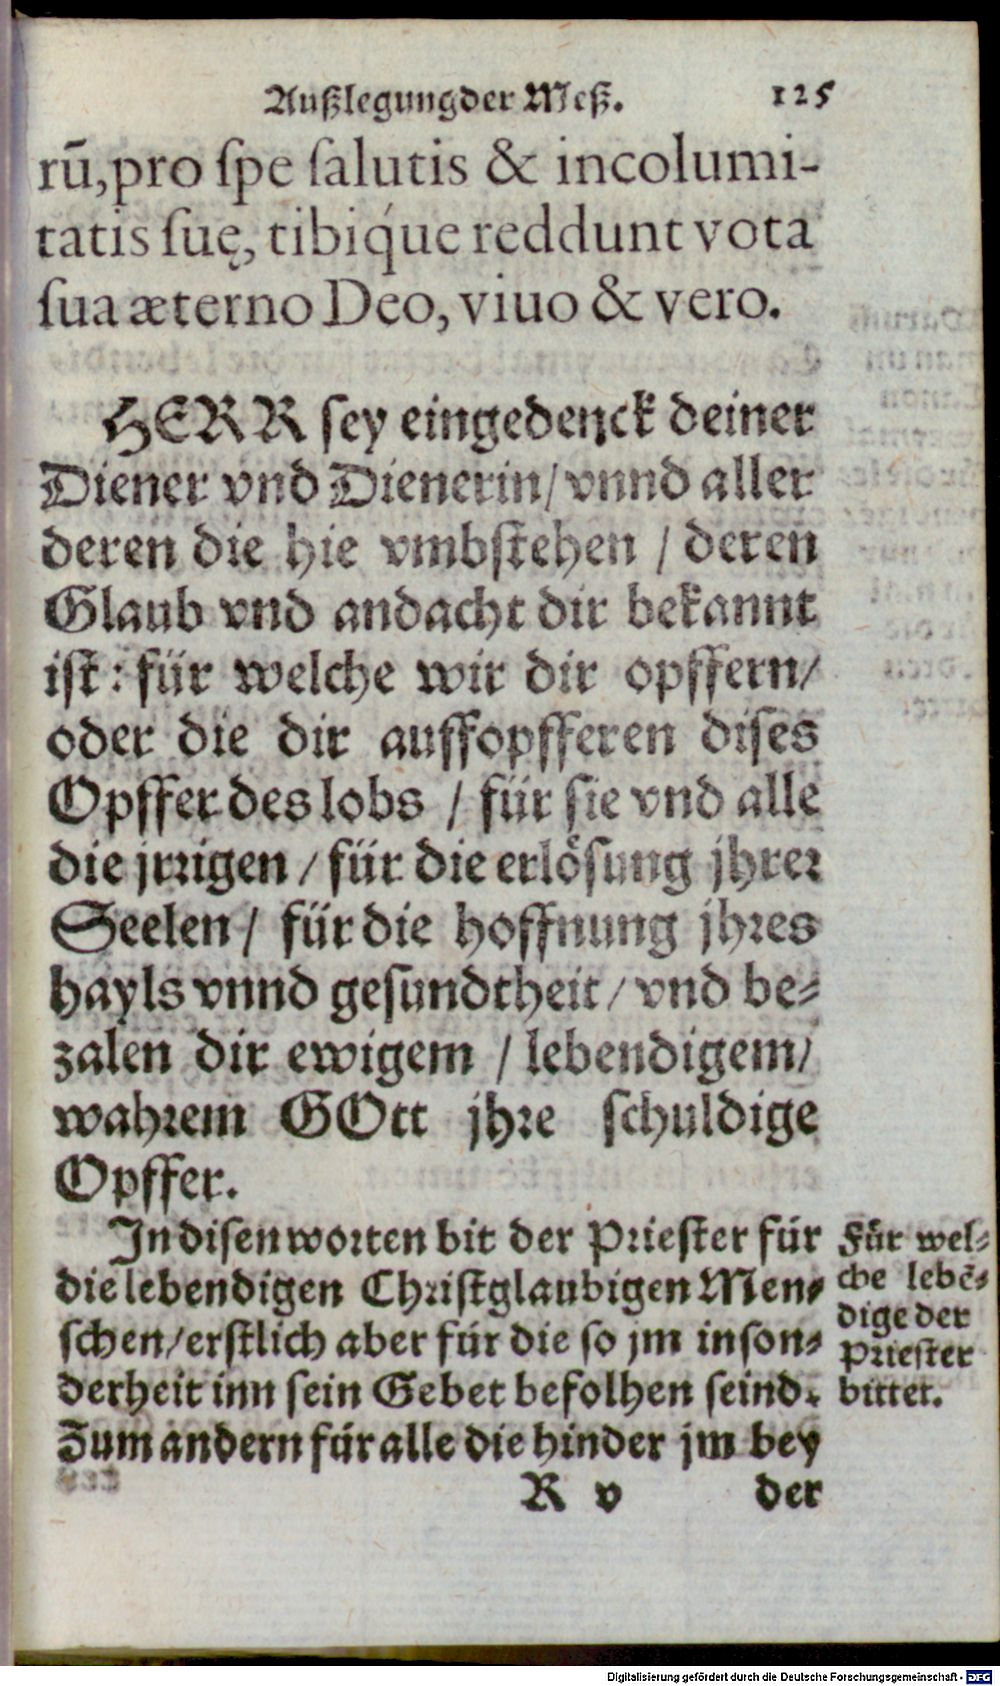 Außlegung der Meß. 125
rū, pro ſpe ſalutis & incolumi-
tatis ſuę, tibiq́ue reddunt vota
ſua æterno Deo, viuo & vero.
HERR sey eingedenck deiner
Diener vnd Dienerin/ vnnd aller
deren die hie vmbstehen / deren
Glaub vnd andacht dir bekannt
ist: für welche wir dir opffern/
oder die dir auffopfferen dises
Opffer des lobs / für sie vnd alle
die jrrigen / für die erlösung jhrer
Seelen / für die hoffnung jhres
hayls vnnd gesundtheit / vnd be-
zalen dir ewigem / lebendigem/
wahrem GOtt jhre schuldige
Opffer.
In disen worten bit der Priester für
die lebendigen Christglaubigen Men-
schen/ erstlich aber für die so jm inson-
derheit inn sein Gebet befolhen seind.
Zum andern für alle die hinder jm bey
Für wel-
che lebē-
dige der
Priester
bittet.
R v der
Digitalisierung gefördert durch die Deutsche Forschungsgemeinschaft - DFG